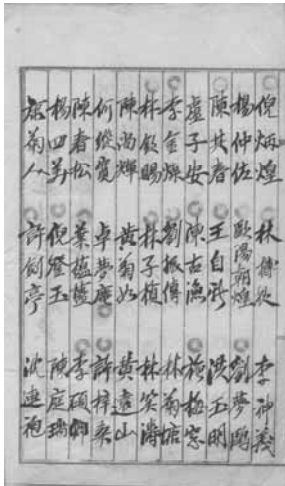 倪炳煌 林搏秋 李神義
楊仲佐 歐陽朝煌 劉夢鷗
陳其春 王自新 洪玉明
盧子安 陳古漁 施梅窓
李金燦 劉振傳 林菊塘
林欽賜 林子楨 林笑濤
陳尚輝 黃菊如 黃遠山
何縱寬 卓夢庵 許梓桑
陳春松 葉蘊藍 李碩卿
楊四美 倪登玉 陳庭瑞
駱菊人 許劍亭 沈連袍